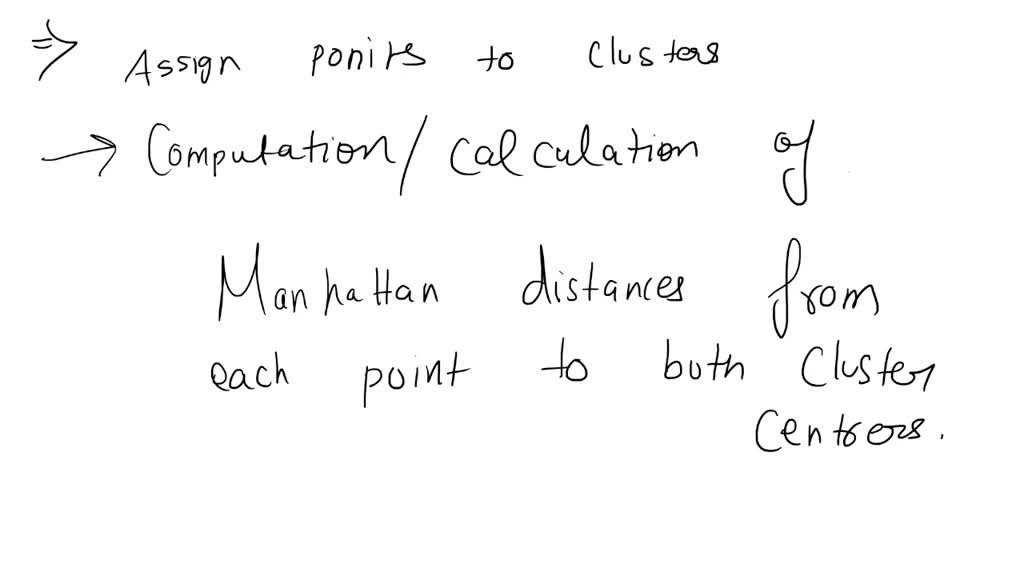 ⇒ Assign ponits to clusters
→ Computation/calculation of
Manhattan distances from
each point to both Cluster
Centrers.